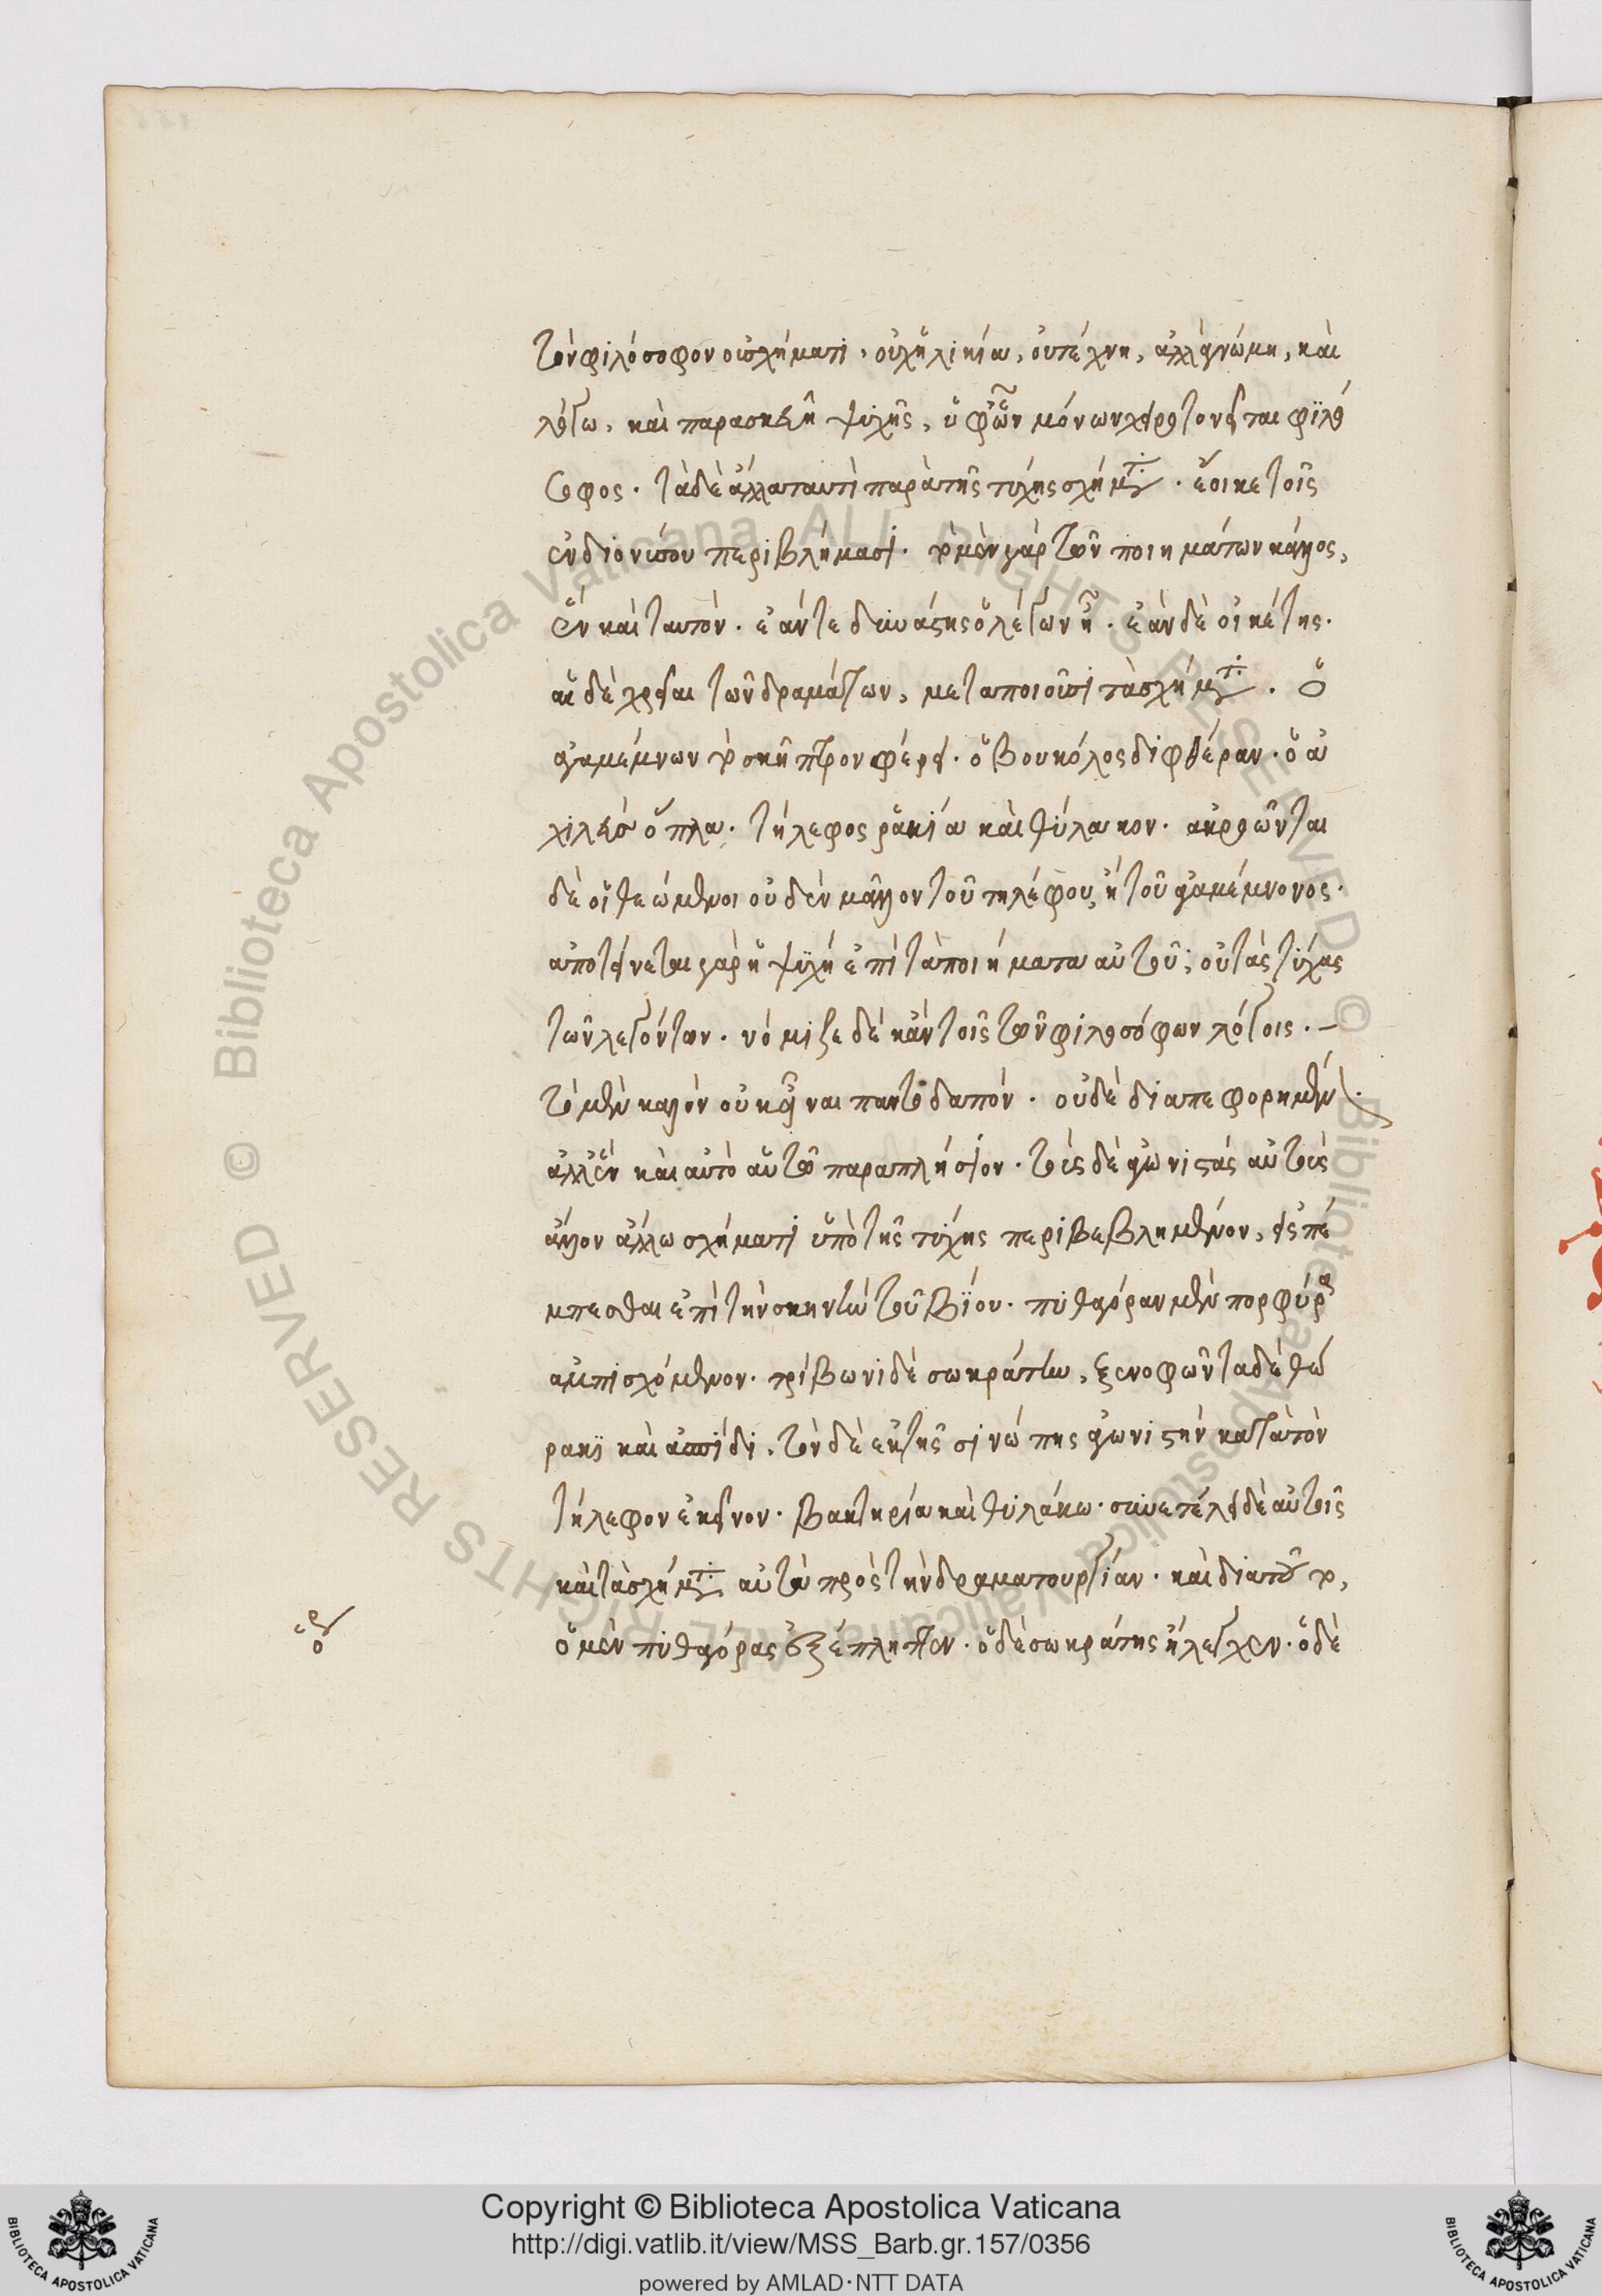 τὸν φιλόσοφον οὐ σχήματι, οὐχ ἡλικία, οὐ τέχνη, ἀλλὰ γνώμη, καὶ
λόγω, καὶ παρασκευῆ ψυχῆς, ὑφ' ὧν μόνων χειροτονεῖται φιλό
σοφος. τὰ δὲ ἄλλα ταυτὶ παρὰ τῆς τύχης σχήματα. ἔοικε τοῖς
ἐν διονύσου περιβλήμασι. τὸ μὲν γὰρ τῶν ποιημάτων κάλλος,
ἓν καὶ ταυτόν. ἐάν τε δυνάστης ὁ λέγων ἦ. ἐὰν δὲ οἰκέτης.
αἱ δὲ χρεῖαι τῶν δραμάτων, μεταποιοῦσι τὰ σχήματα. ὁ
ἀγαμέμνων τὸ σκῆπτρον φέρει. ὁ βουκόλος διφθέραν. ὁ ἀ
χιλεὺς ὅπλα. τήλεφος ῥακία καὶ θύλακον. ἀκροῶνται
δὲ οἱ θεώμενοι οὐδὲν μᾶλλον τοῦ τηλέφου, ἢ τοῦ ἀγαμέμνονος.
ἀποτείνεται γὰρ ἡ ψυχὴ ἐπὶ τὰ ποιήματα αὐτοῦ, οὐ τὰς τύχας
τῶν λεγόντων. νόμιζε δὲ κἀν τοῖς τῶν φιλοσόφων λόγοις. –
τὸ μὲν καλὸν οὐκ εἶναι παντοδαπόν. οὐδὲ διαπεφορημέν.
ἀλλ' ἓν καὶ αὐτὸ αὑτῶ παραπλήσιον. τοὺς δὲ ἀγωνιστὰς αὐτοὺς
ἄλλον ἄλλω σχήματι ὑπὸ τῆς τύχης περιβεβλημένον, εἰσπέ
μπεσθαι ἐπὶ τὴν σκηνὴν τοῦ βίου. πυθαγόραν μὲν πορφύρα
ἀμπισχόμενον. τρίβωνι δὲ σωκράτην, ξενοφῶντα δὲ θώ
ρακι καὶ ἀσπίδι. τὸν δὲ ἐκ τῆς σινώπης ἀγωνιστὴν κατὰ τὸν
τήλεφον ἐκεῖνον. βακτηρία καὶ θυλάκω. συνετέλει δὲ αὐτοῖς
καὶ τὰ σχήματα αὐτὰ πρὸς τὴν δραματουργίαν. καὶ διὰ τοῦτο,
ὁ μὲν πυθαγόρας ἐξέπληττεν. ὁ δὲ σωκράτης ἤλεγχεν. ὁ δὲ
Copyright © Biblioteca Apostolica Vaticana
http://digi.vatlib.it/view/MSS_Barb.gr.157/0356
powered by AMLAD·NTT DATA